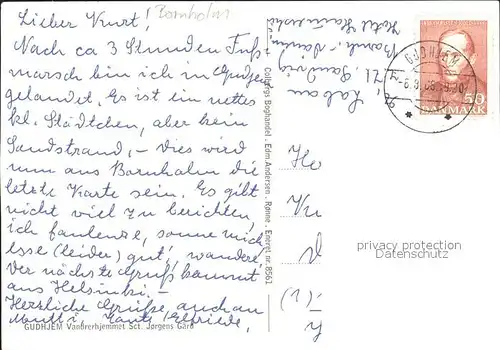 Bornholm
Lieber Kurt!
Nach ca 3 Stunden Fuß=
marsch bin ich in Gudjem
gelandet. Es ist ein nettes
kl. Städtchen, aber kein
Sandstrand, – dies wird
nun aus Bornholm die
letzte Karte sein. Es gibt
nicht viel zu berichten,
ich faulenze, sonne mich
esse (leider) gut, wandere,
Der nächste Gruß kommt
aus Helsinki. –
Herzliche Grüße, auch an
Mutti, Tante Elfriede,
GUDHJEM Vandrerhjemmet Sct. Jørgens Gård
Colbergs Boghandel . Edm. Andersen . Rønne - Eneret nr. 8561
Hotel
Sandvig
GUDHJEM
50
DANMARK
privacy protection
Datenschutz